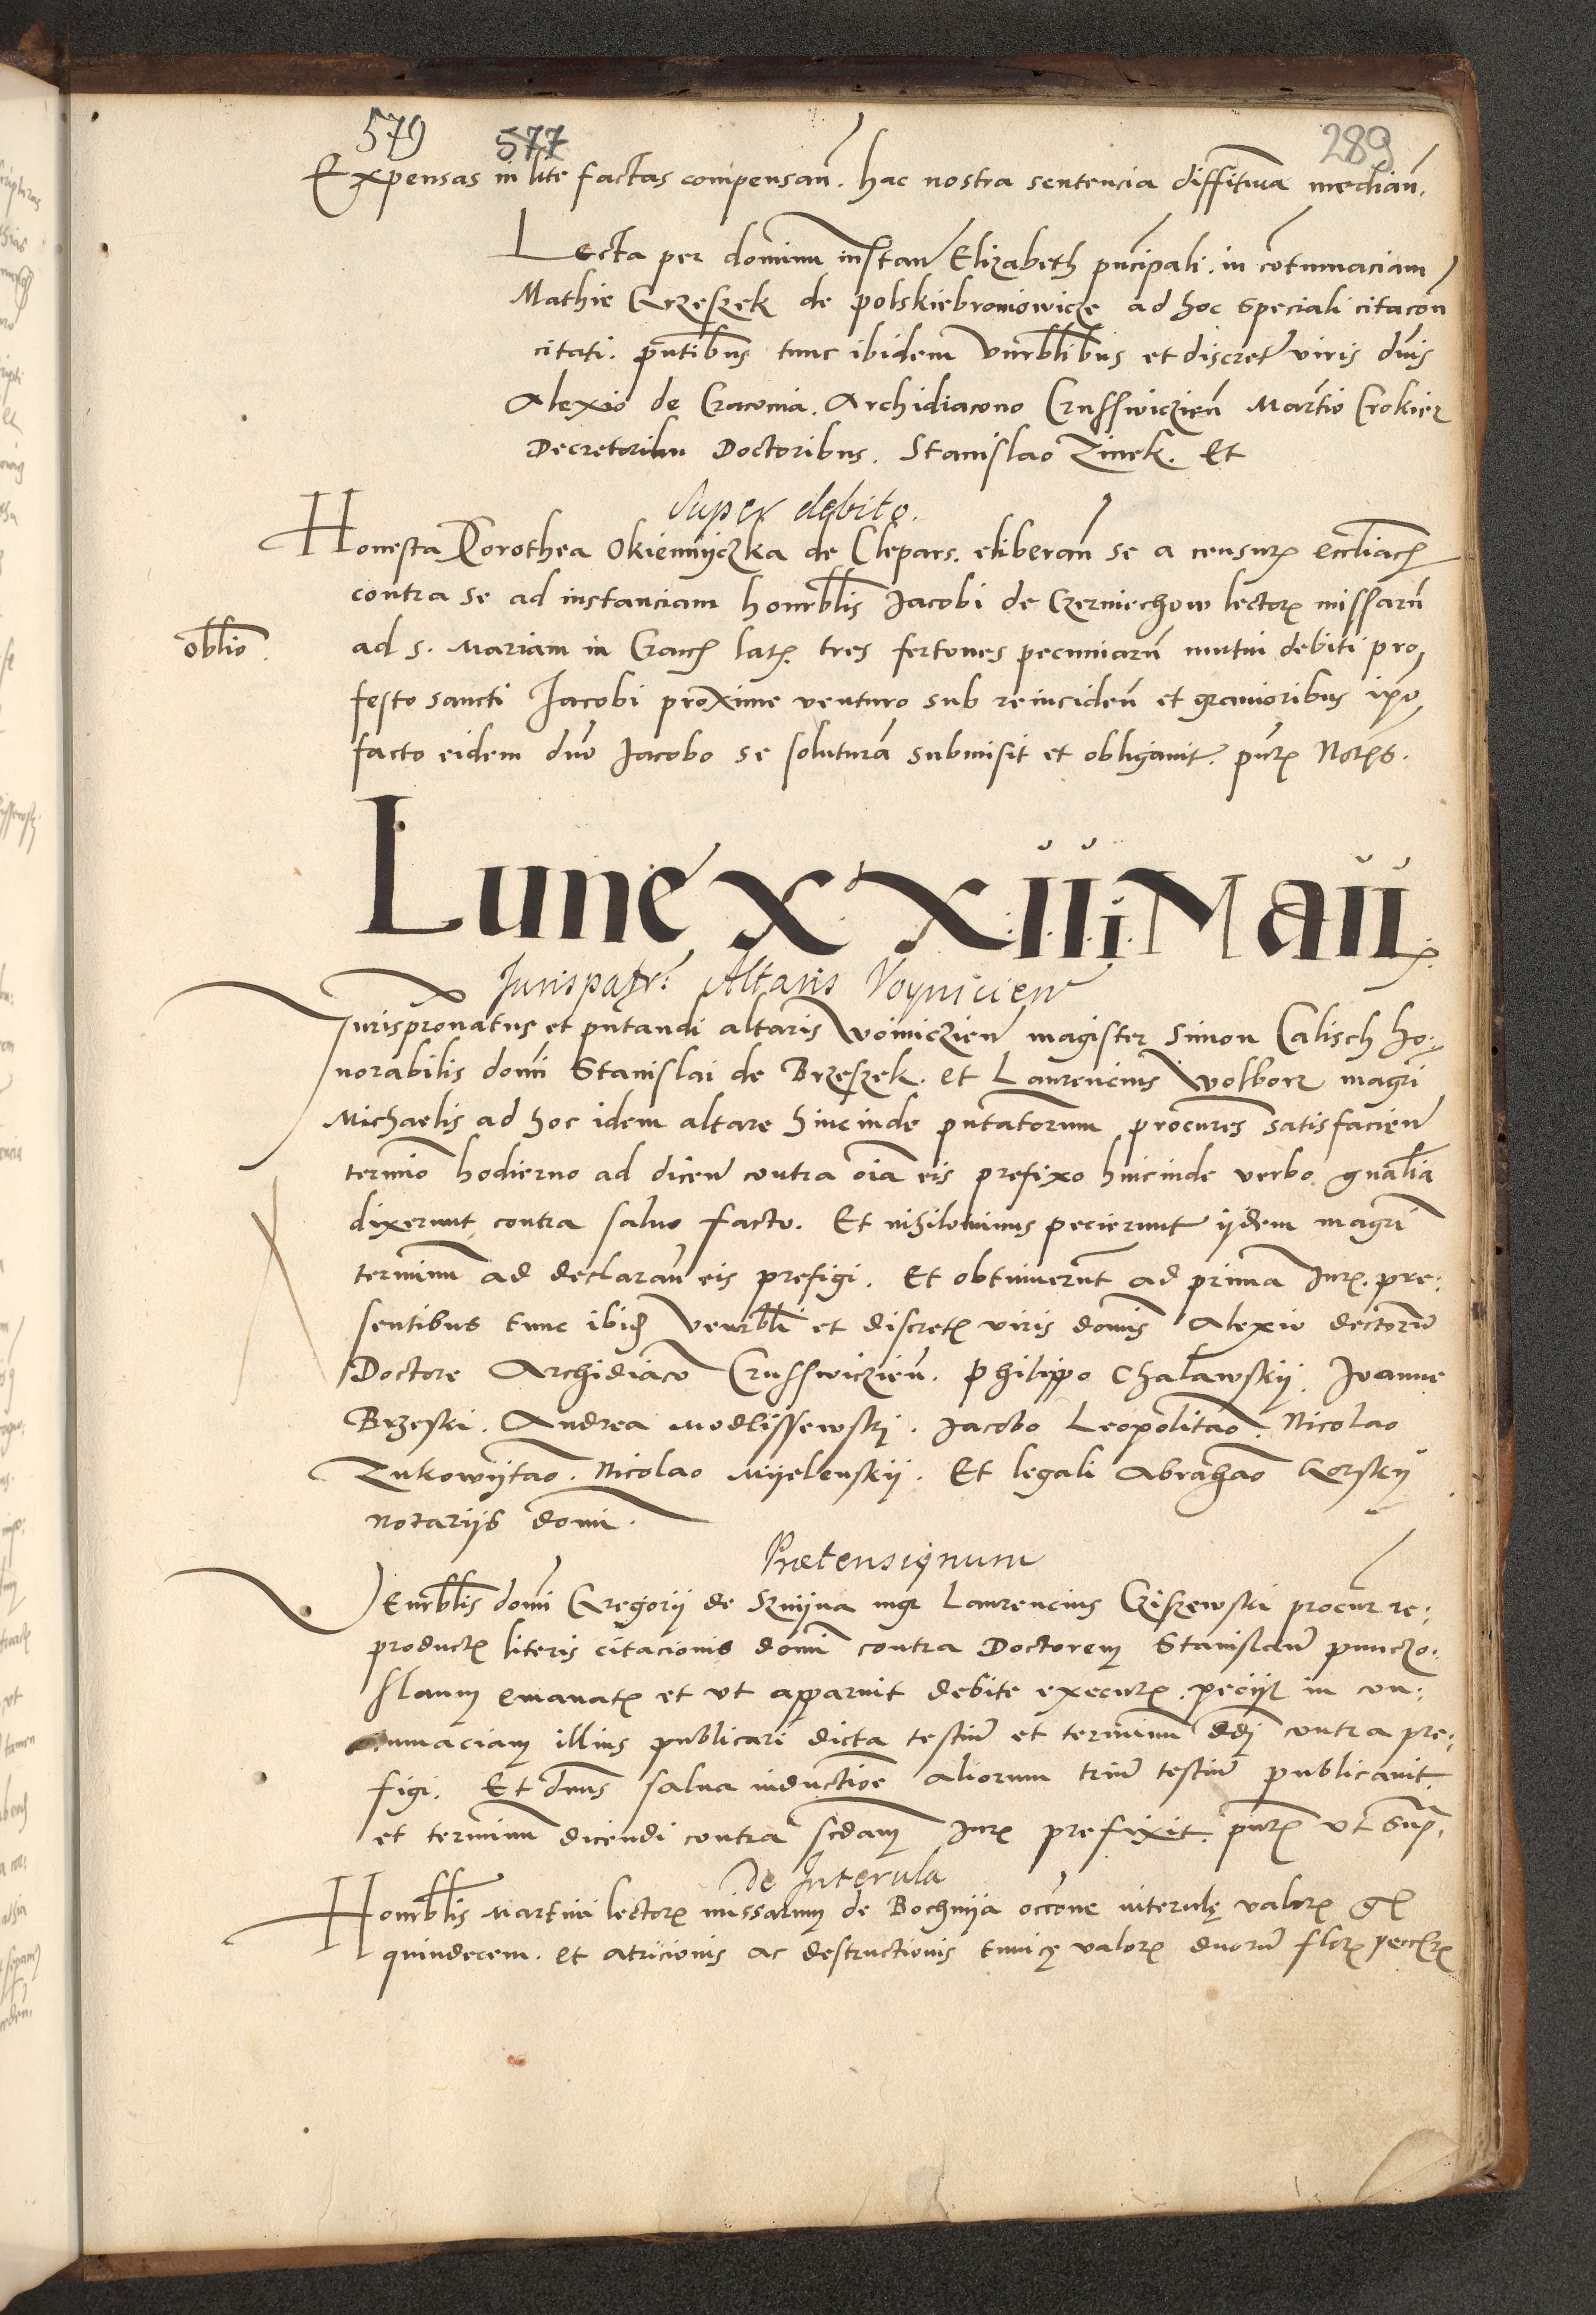 579 577 289
Expensas in lite factas compensan̄. hac nostra sentencia diffitiua median̄.
Lecta per dominu instan̄ Elizabeth pn̄cipali. in cōtumaciam
Mathie Grzeszek de polskiebroniowicze ad hoc speciali citacōn
citati. pn̄tibus tunc ibidem Vn̄rblibus et discret viris dn̄is
Alexio de Craconia. Archidiacono Crusswiczien̄ Martīo Crokier
Decretorum Doctoribus. Stanislao Zinek. Et
Super debito.
Honesta Dorothea Okiennyczka de Clepars. eliberan̄ se a censur eccliac
contra se ad instanciam honrblis Jacobi de Czerniechow lector missarū
oblīo.
ad s. Mariam in Crac lat. tres fertones pecuniarū mutui debiti pro
festo sancti Jacobi proxime venturo sub reinciden̄ et grauioribus ipō
facto eidem dn̄o Jacobo se soluturā submisit et obligauit. pn̄t Notīs.
Lune XXIII Maii
Jurispatr. Altaris Voynicien̄
Jurispronatus et pn̄tandi altaris Woiniczien̄ magister Simon Calisch ho:
norabilis domī Stanislai de Brzeszek. et Laurencius Wolborz magrī
Michaelis ad hoc idem altare hincinde pn̄tatorum procūres satisfacien̄
termīo hodierno ad dicen̄ contra oīa eis prefixo hincinde verbo gn̄alia
dixerunt contra saluo facto. Et nihilominus pecierunt ijdem magrī
terminū ad declaran̄ eis prefigi. Et obtinuerūt ad prima Jur. pre:
sentibus tunc ibid Venrbli et discret viris domīs Alexio dectorū
Doctore Archidiacō Crusswiczien̄. Philippo Chalawskij. Joanne
Brzeski. Andrea Modlissewskj. Jacobo Leopolitaō. Nicolao
Zukowijtaō. Nicolao Mijelenskij. Et legali Abrahaō Gorskij
notarijs domī.
Prætensignum
Venrblis domī Gregorij de Szmijna mgr Laurencius Cziszewski procur re:
product literis citacionis domī contra Doctorem Stanislaū punczo:
slaum emanat et vt apparuit debite execut. pecijt in con:
tumaciam illius publicari dicta testiū et terminū ddj contra pre:
figi. Et dn̄us salua inductiōe aliorum triū testiū publicauit
et terminū dicendi contra scdam Jur prefixit. pn̄t vt Sup.
De Interula
Honrblis Martini lector missarum de Bochnija occōne interulę valor gr
quindecem. et atricionis ac destructionis tunicę valor duorū flor